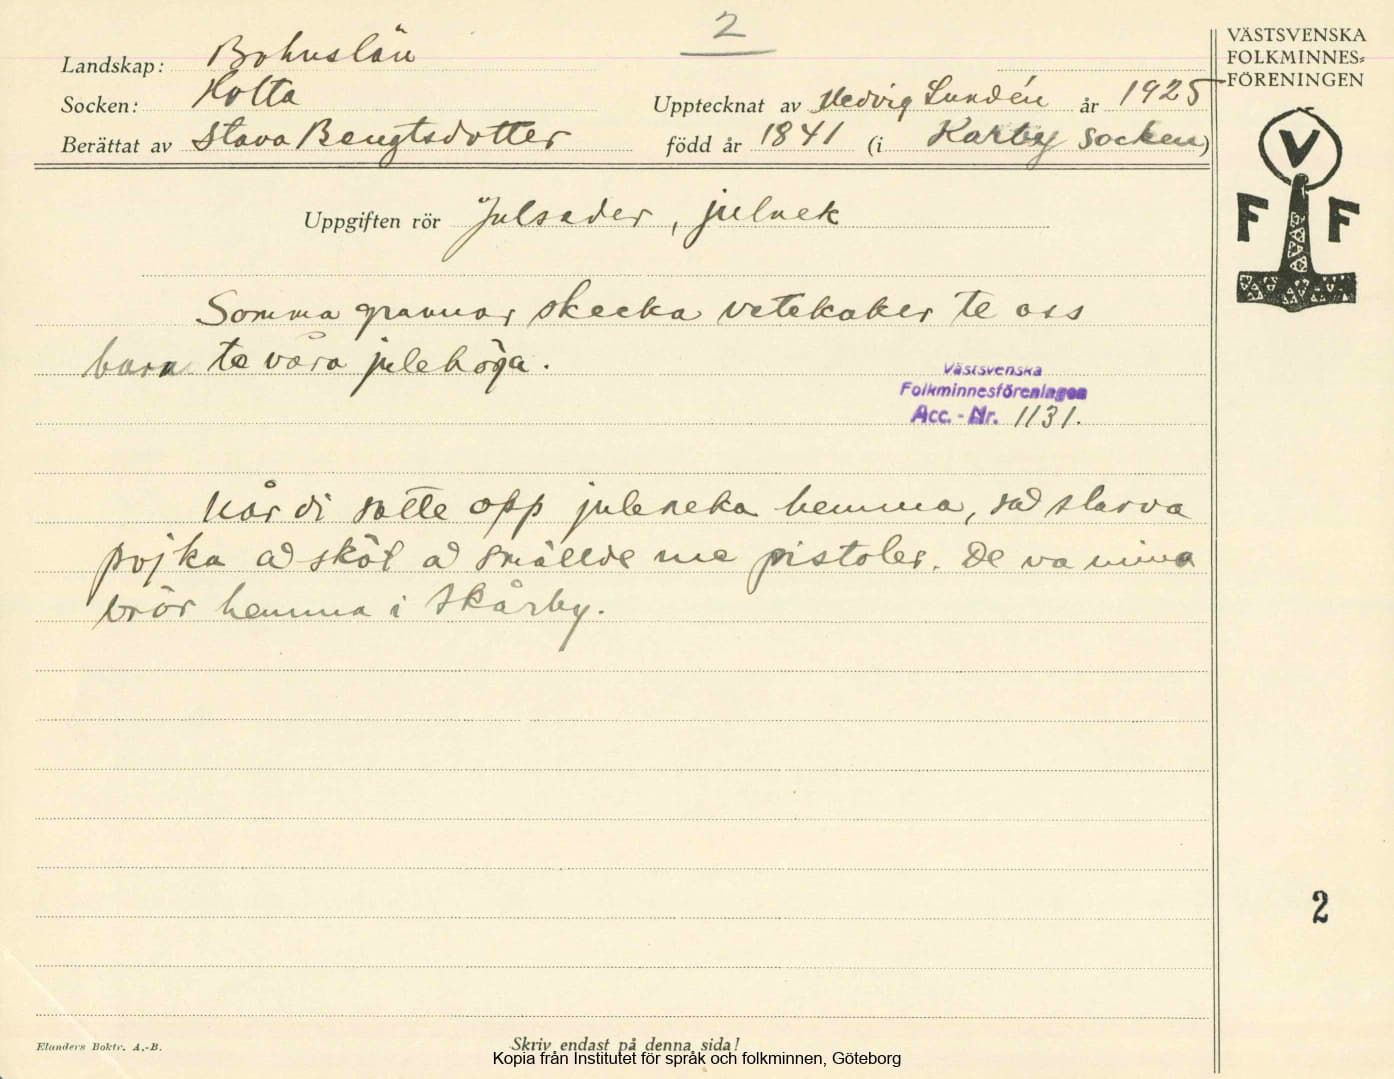 2
VÄSTSVENSKA
FOLKMINNES=
FÖRENINGEN
Landskap: Bohuslän
Socken: Holta
Upptecknat av Hedvig Lundén år 1925
Berättat av Stava Bengtsdotter
född år 1841 (i Karby socken)
V
F F
Uppgiften rör Julseder, julnek
Somma grannar skecka vetekaker te oss
bara te våra julehöga.
Västsvenska
Folkminnesföreningen
Acc. - Nr. 1131.
Når di satte opp juleneka hemma, så
pojka å sköt å smällde me pistoler. De va mina
brör hemma i Skårby.
2
Elanders Boktr. A.-B.
Skriv endast på denna sida!
Kopia från Institutet för språk och folkminnen, Göteborg